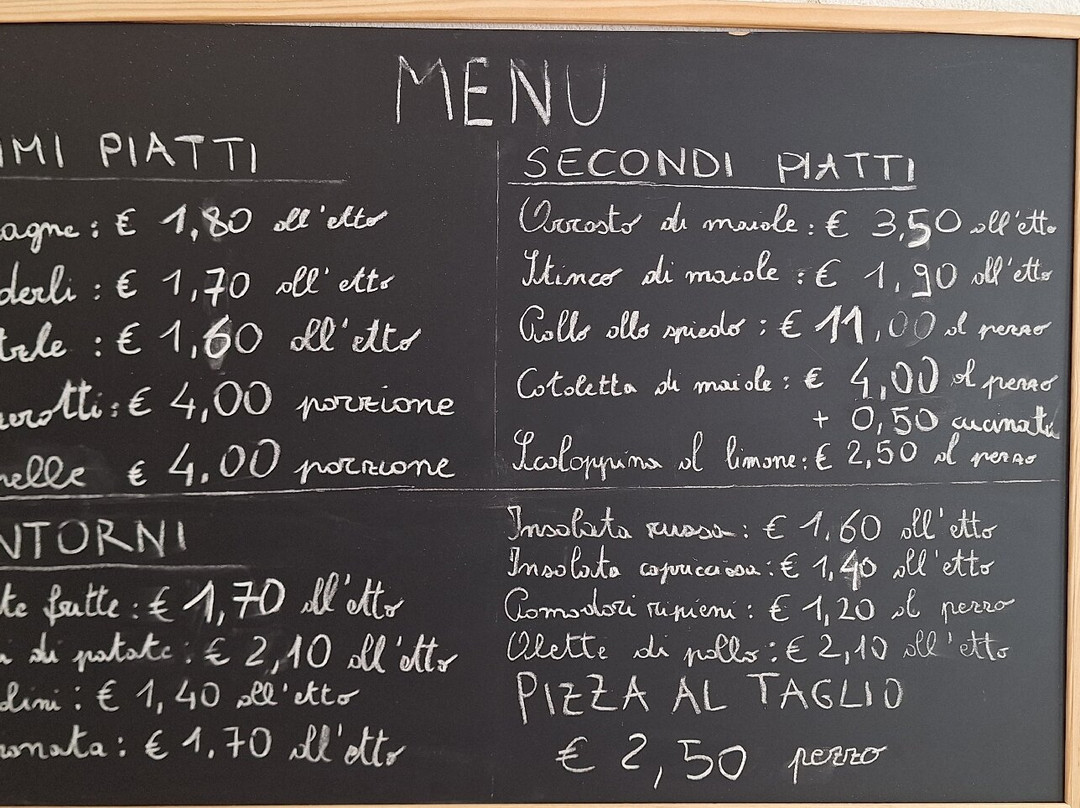 MENU
IMI PIATTI
agne: € 1,80 all'etto
derli: € 1,70 all'etto
trele: € 1,60 all'etto
erotti: € 4,00 porzione
nelle € 4,00 porzione
SECONDI PIATTI
Arrosto di maiale: € 3,50 all'etto
Stinco di maiale: € 1,90 all'etto
Pollo allo spiedo: € 11,00 al pezzo
Cotoletta di maiale: € 4,00 al pezzo
+ 0,50 cucinata
Scaloppina al limone: € 2,50 al pezzo
NTORNI
te fritte: € 1,70 all'etto
di patate: € 2,10 all'etto
dini: € 1,40 all'etto
ronata: € 1,70 all'etto
Insalata russa: € 1.60 all'etto
Insalata capricciosa: € 1,40 all'etto
Pomodori ripieni: € 1,20 al pezzo
Alette di pollo: € 2,10 all'etto
PIZZA AL TAGLIO
€ 2,50 pezzo